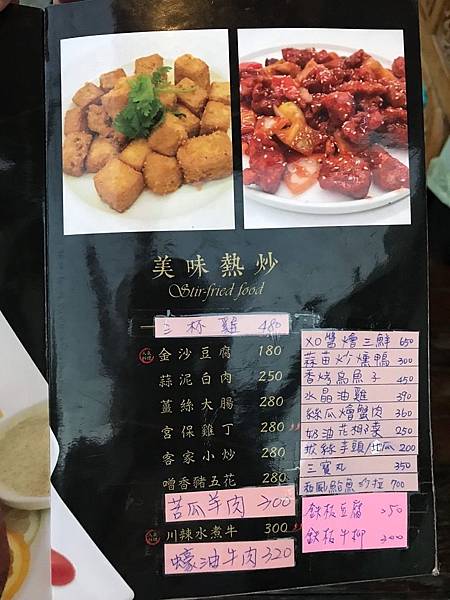 美味熱炒
Stir-fried food
三杯雞 480
人氣料理 金沙豆腐 180
蒜泥白肉 250
薑絲大腸 280
宮保雞丁 280
客家小炒 280
噌香豬五花 280
苦瓜羊肉 300
人氣料理 川辣水煮牛 300
蠔油牛肉 320
XO醬燴三鮮 650
蒜苗炒燻鴨 300
香烤烏魚子 450
水晶油雞 390
絲瓜燴蟹肉 360
奶油花椰菜 250
拔絲芋頭/地瓜 200
三寶丸 350
和風鮑魚沙拉 700
鉄板豆腐 250
鉄板牛柳 300